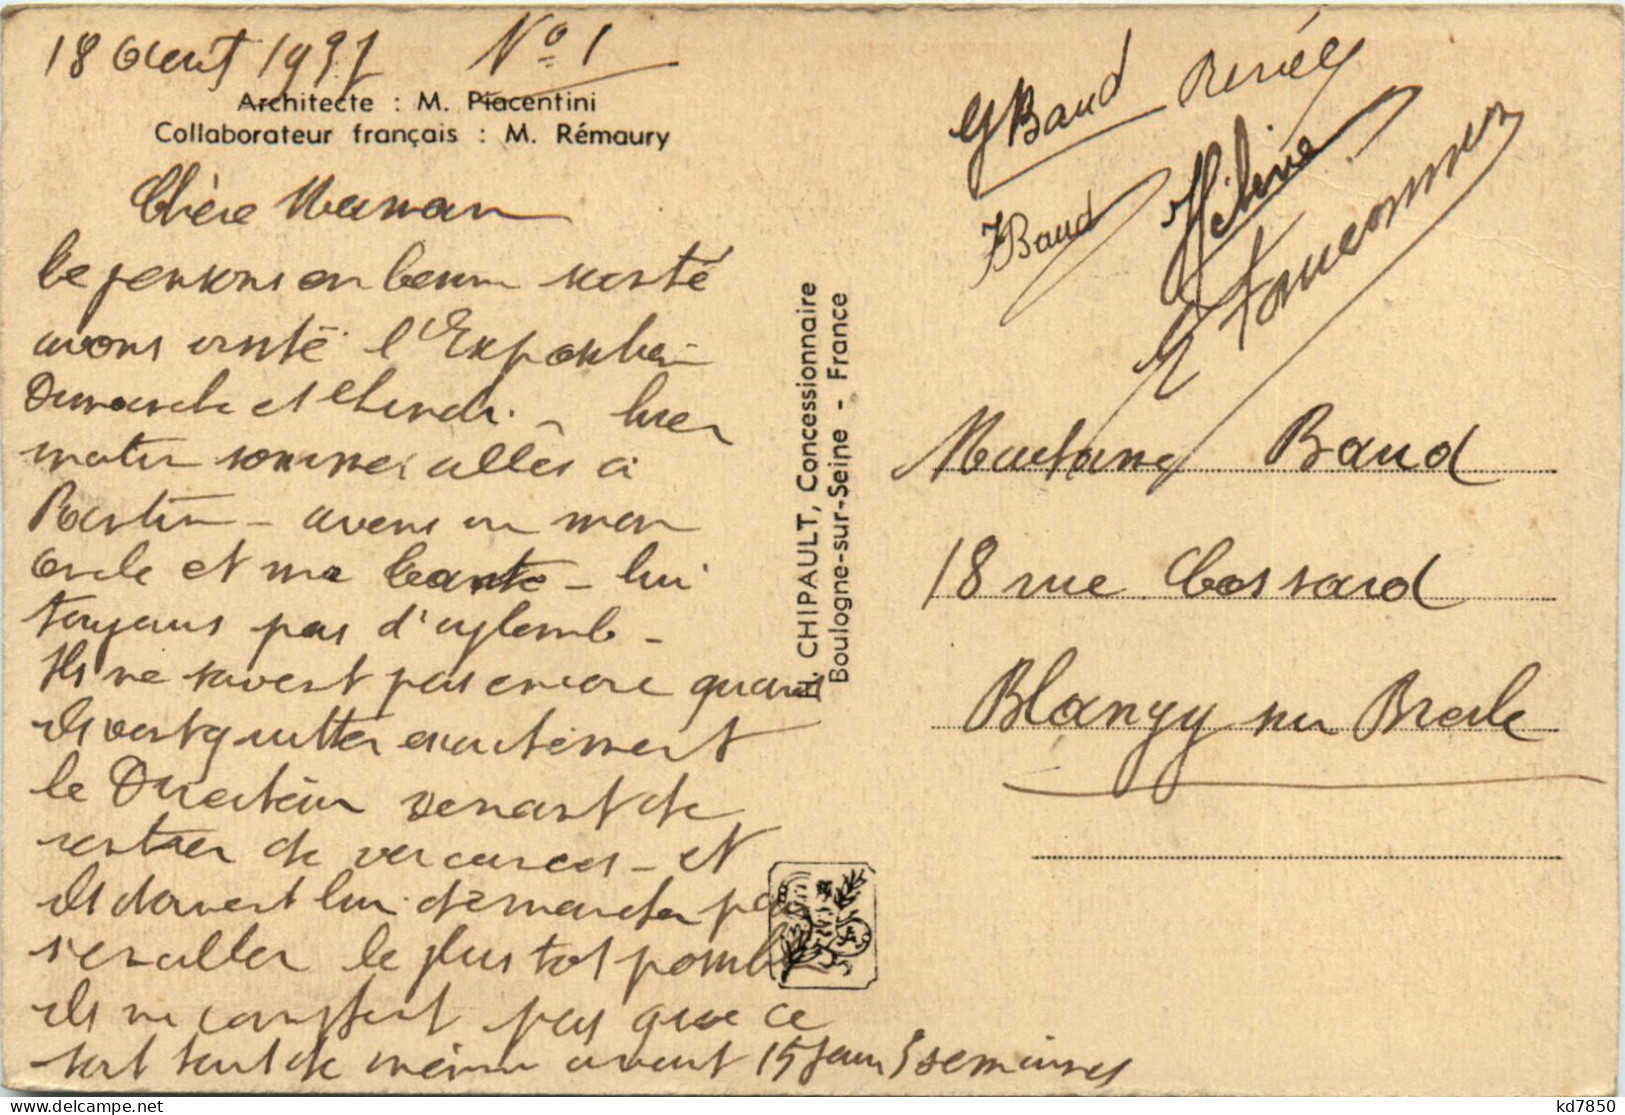 18 Aout 1937 N° 1
Architecte : M. Piacentini
Collaborateur français : M. Rémaury
Chère Maman
Ce pensons en bonne santé
avons visité l'Exposition
Dimanche et Lundi. - hier
matin sommes allés à
Pantin - avons vu mon
oncle et ma tante - lui
toujours pas d'aplomb -
Ils ne savent pas encore quand
ils vont quitter exactement
le Directeur venant de
rentrer de vacances - et
ils doivent lui demander pour
s'en aller le plus tot possible
ils ne comptent pas que ce
soit tout de même avant 15 jours 3 semaines
G Baud Renée
J Baud Hélène
Madame Baud
18 rue Cossard
Blangy sur Bresle
H. CHIPAULT, Concessionnaire
Boulogne-sur-Seine - France
kd7850